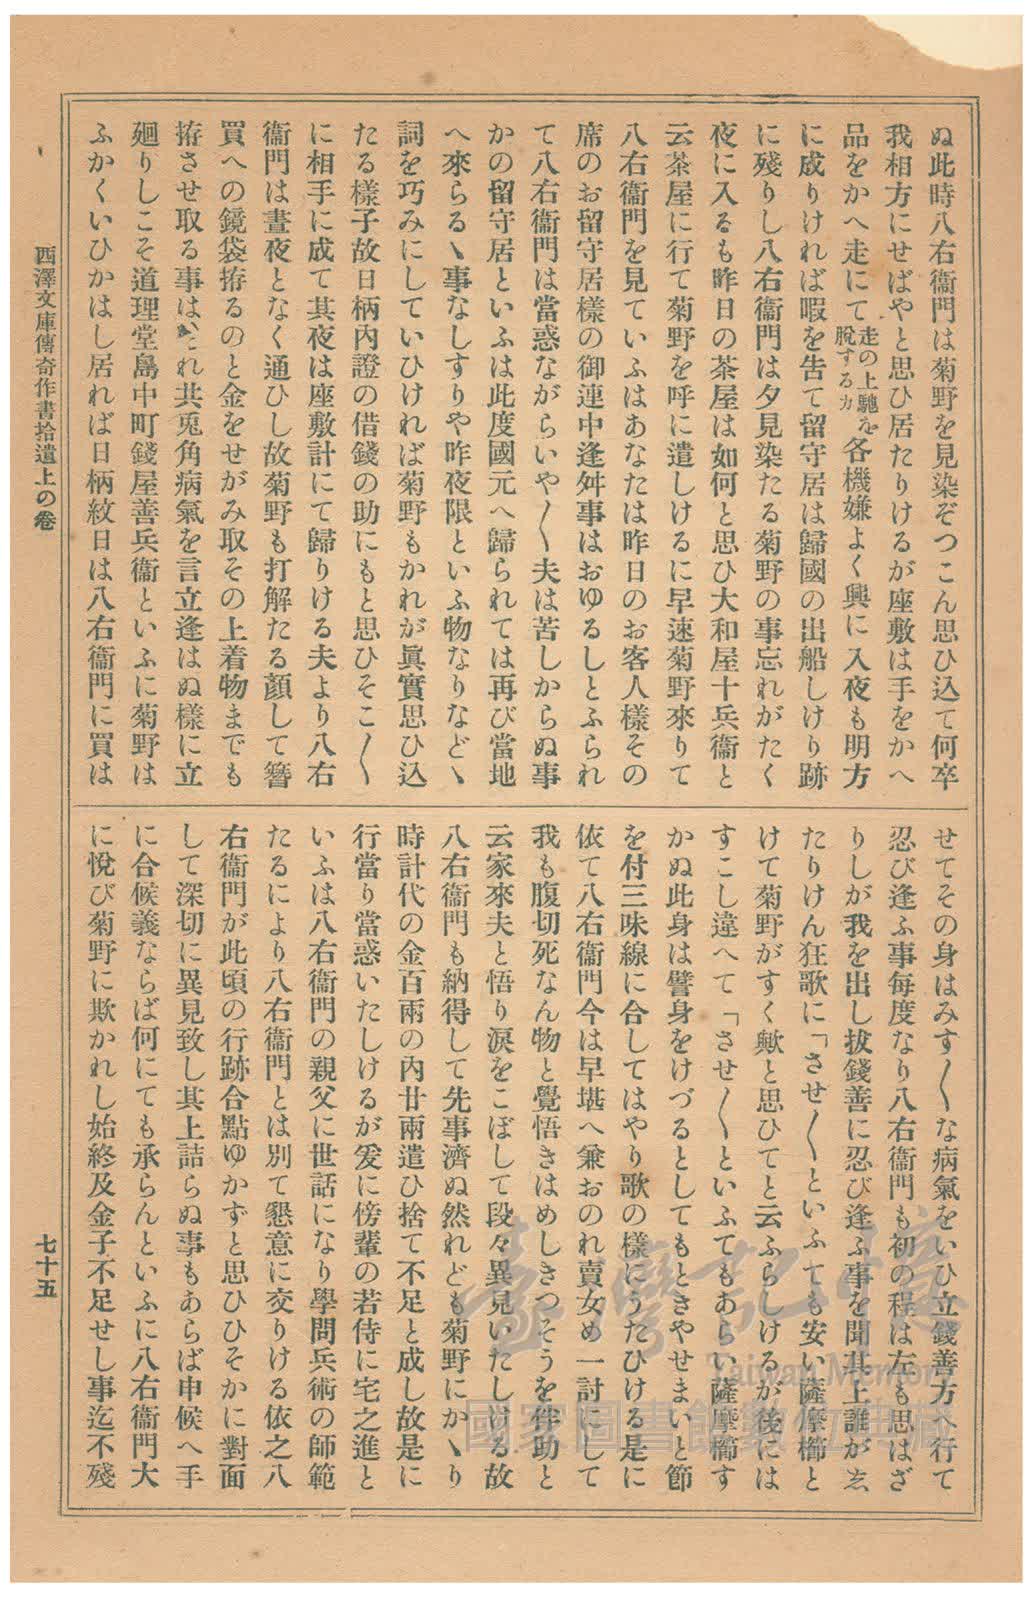 ぬ此時八右衞門は菊野を見染ぞつこん思ひ込て何卒
我相方にせばやと思ひ居たりけるが座敷は手をかへ
品をかへ走にて走の上馳を脫するカ各機嫌よく興に入夜も明方
に成りければ暇を吿て留守居は歸國の出船しけり跡
に殘りし八右衞門は夕見染たる菊野の事忘れがたく
夜に入るも昨日の茶屋は如何と思ひ大和屋十兵衞と
云茶屋に行て菊野を呼に遣しけるに早速菊野來りて
八右衞門を見ていふはあなたは昨日のお客人樣その
席のお留守居樣の御連中逢舛事はおゆるしとふられ
て八右衞門は當惑ながらいや〳〵夫は苦しからぬ事
かの留守居といふは此度國元へ歸られては再び當地
へ來らるヽ事なしすりや昨夜限といふ物なりなどヽ
詞を巧みにしていひければ菊野もかれが眞實思ひ込
たる樣子故日柄內證の借錢の助にもと思ひそこ〳〵
に相手に成て其夜は座敷計にて歸りける夫より八右
衞門は晝夜となく通ひし故菊野も打解たる顏して簪
買への鏡袋拵るのと金をせがみ取その上着物までも
拵させ取る事はかこれ共兎角病氣を言立逢はぬ樣に立
廻りしこそ道理堂島中町錢屋善兵衞といふに菊野は
ふかくいひかはし居れば日柄紋日は八右衞門に買は
せてその身はみす〳〵な病氣をいひ立錢善方へ行て
忍び逢ふ事每度なり八右衞門も初の程は左も思はざ
りしが我を出し拔錢善に忍び逢ふ事を聞其上誰がゑ
たりけん狂歌に「させ〳〵といふても安い薩摩櫛と
けて菊野がすく歟と思ひてと云ふらしけるが後には
すこし違へて「させ〳〵といふてもあらい薩摩櫛す
かぬ此身は譬身をけづるとしてもときやせまいと節
を付三味線に合してはやり歌の樣にうたひける是に
依て八右衞門今は早堪へ兼おのれ賣女め一討にして
我も腹切死なん物と覺悟きはめしきつそうを伴助と
云家來夫と悟り淚をこぼして段々異見いたしける故
八右衞門も納得して先事濟ぬ然れども菊野にかヽり
時計代の金百兩の內廿兩遣ひ捨て不足と成し故是に
行當り當惑いたしけるが爰に傍輩の若侍に宅之進と
いふは八右衞門の親父に世話になり學問兵術の師範
たるにより八右衞門とは別て懇意に交りける依之八
右衞門が此頃の行跡合點ゆかずと思ひひそかに對面
して深切に異見致し其上詰らぬ事もあらば申候へ手
に合候義ならば何にても承らんといふに八右衞門大
に悅び菊野に欺かれし始終及金子不足せし事迄不殘
西澤文庫傳奇作書拾遺上の卷
七十五
臺灣記憶
Taiwan Memory
國家圖書館數位典藏